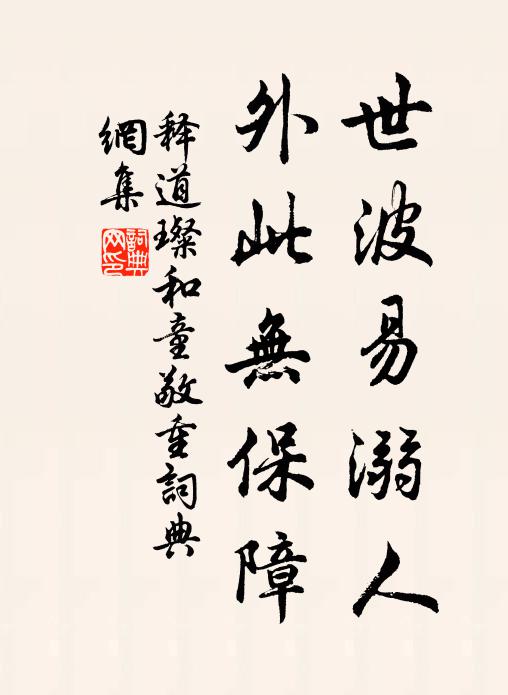 世波易溺人
外此無保障
释道璨和童敬重詞典
網集
詞典
网印